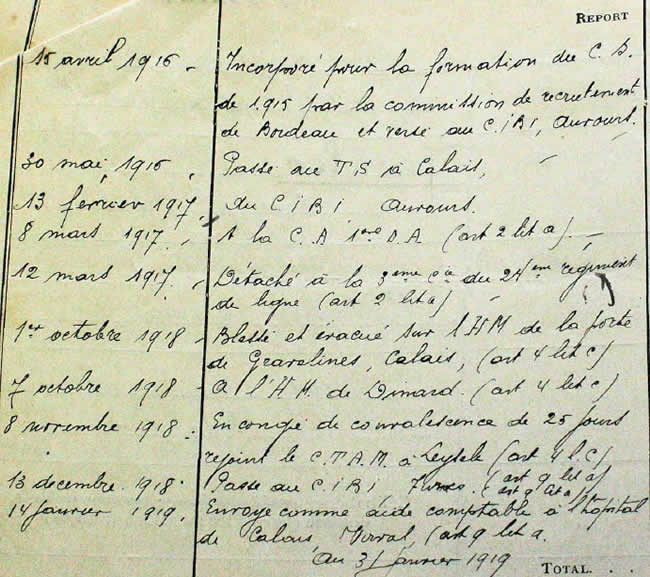 REPORT
15 avril 1916 - Incorporé pour la formation du C. B.
de 1915 par la commission de recrutement
de Bordeau et versé au C.I.B.I, Auvours.
30 mai 1916, Passe au T.S à Calais,
13 février 1917, du C.I.B.I Auvours.
8 mars 1917. - A la C.A 1ere D.A (art 2 lit a). -
12 mars 1917. - Détaché à la 3eme Cie du 24eme régiment
de ligne (art 2 lit a)
1er octobre 1918 - Blessé et évacué sur l'HM de la porte
de Gravelines, Calais, (art 4 lit c)
7 octobre 1918 - A l'H.M. de Dinard. (art 4 lit c)
8 novembre 1918 - En congé de convalescence de 25 jours
rejoint le C.T.A.M. à Leysele (art 4 l.c)
13 decembre. 1918. Passe au C.I.B.I (art 9 lit a)
14 Janvier 1919, Envoye comme aide comptable à l'hopital
de Calais (art 9 lit a.
Au 31 Janvier 1919
TOTAL. . .